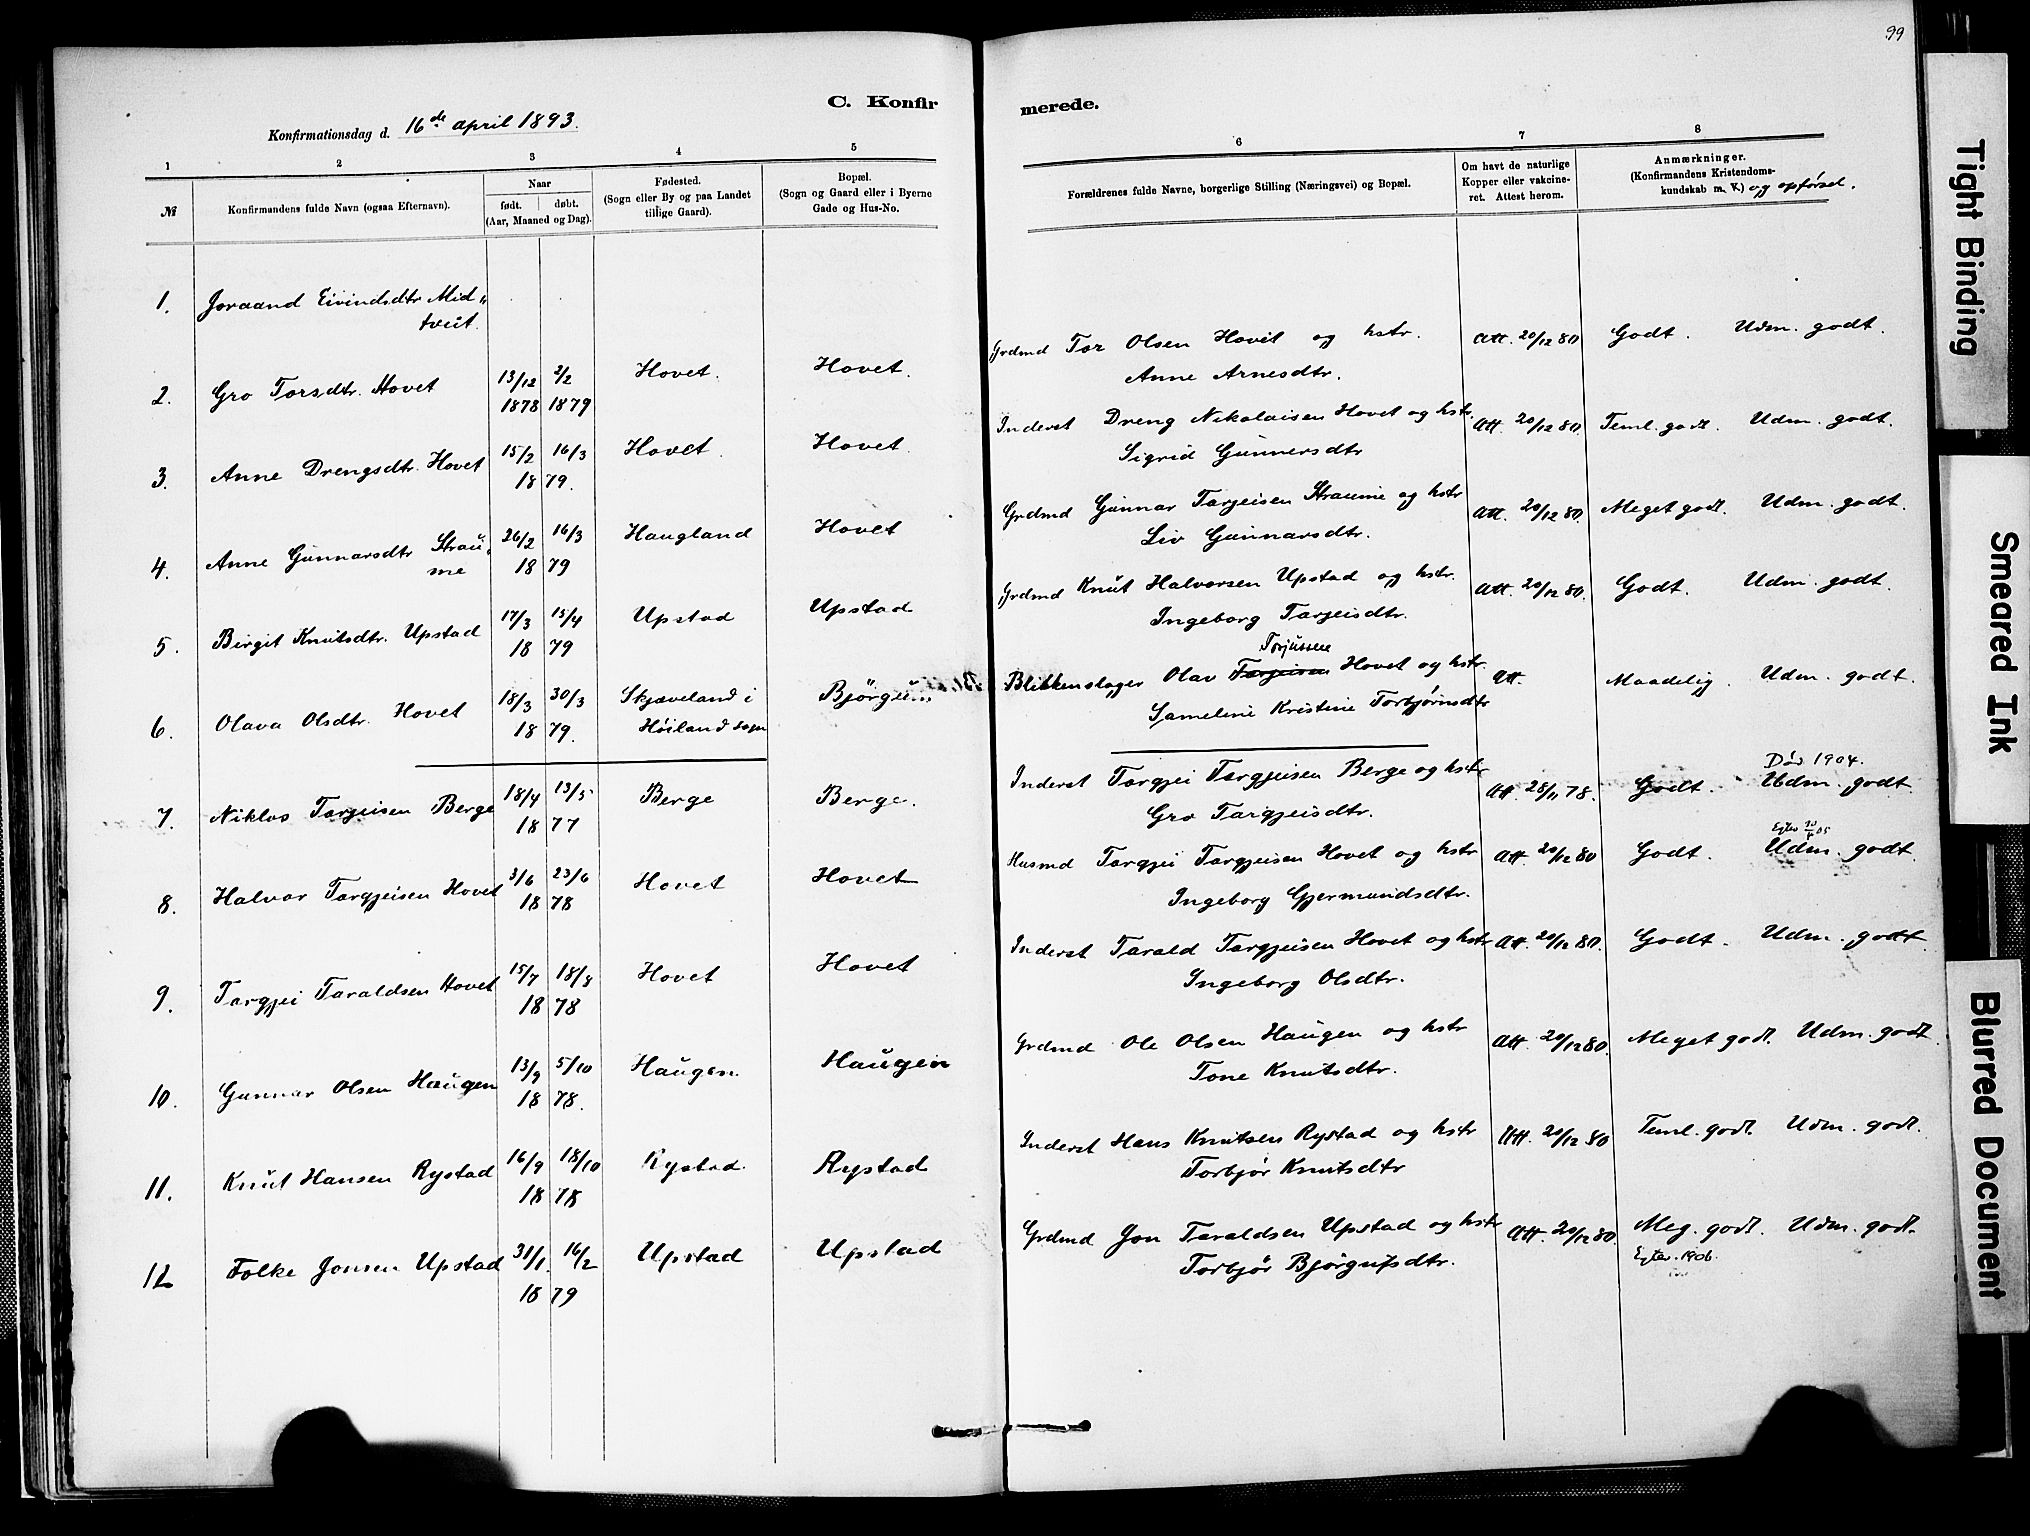 99
C. Konfirmerede.
Konfirmationsdag d. 16de april 1893.
1 2 3 4 5 6 7 8
№
Konfirmandens fulde Navn (ogsaa Efternavn).
Naar
født. døbt.
(Aar, Maaned og Dag).
Fødested.
(Sogn eller By og paa Landet
tillige Gaard).
Bopæl.
(Sogn og Gaard eller i Byerne
Gade og Hus-No.
Forældrenes fulde Navne, borgerlige Stilling (Næringsvei) og Bopæl.
Om havt de naturlige
Kopper eller vakcine-
ret. Attest herom.
Anmærkninger.
(Konfirmandens Kristendoms-
kundskab m. V.) og opførsel.
1. Joraand Eivindsdtr Mid„
tveit.
2. Gro Torsdtr. Hovet 13/12 1878 2/2 1879 Hovet. Hovet.
Grdmd Tor Olsen Hovet og hstr. Att. 20/12 80 Godt. Udm. godt.
Anne Arnesdtr.
3. Anne Drengsdtr. Hovet 15/2 16/3 1879. Hovet. Hovet.
Inderst Dreng Nikolaisen Hovet og hstr. Att. 20/12 80. Teml. godt. Udm. godt.
Sigrid Gunnersdtr
4. Anne Gunnarsdtr Strau„
me 26/2 16/3 1879 Haugland Hovet
Grdmd Gunnar Tarjeisen Straume og hstr Att. 20/12 80. Meget godt. Udm. godt.
Liv Gunnarsdtr.
5. Birgit Knutsdtr. Upstad 17/3 15/4 1879 Upstad Upstad
Grdmd Knut Halvorsen Upstad og hstr. Att. 20/12 80. Godt. Udm. godt.
Ingeborg Tarjeisdtr.
6. Olava Olsdtr. Hovet 18/3 30/3 1879. Skjæveland i
Høiland sogn
Torjussen
Blikkenslager Olav Tarjeisen Hovet og hstr. Att. Maadelig. Udm. godt.
Sameline Kristine Torbjørnsdtr
7. Niklos Tarjeisen Berge 18/4 13/5 1877 Berge Berge.
Død 1904.
Inderst Targjei Targjeisen Berge og hstr Att. 28/11 78. Godt. Udm. godt.
Gro Targjeisdtr.
8. Halvor Targjeisen Hovet 3/6 23/6 1878 Hovet Hovet
Husmd Targjei Targjeisen Hovet og hstr Att. 20/12 80 Godt. Udm. godt.
Ingeborg Gjermundsdtr.
9. Targjei Taraldsen Hovet 15/7 18/8 1878 Hovet Hovet
Inderst Tarald Targjeisen Hovet og hstr Att. 20/12 80. Godt. Udm. godt.
Ingeborg Olsdtr.
10. Gunnar Olsen Haugen 13/9 5/10 1878. Haugen. Haugen
Grdmd Ole Olsen Haugen og hstr Att. 20/12 80. Meget godt. Udm. godt.
Tone Knutsdtr.
11. Knut Hansen Rystad 16/9 18/10 1878 Rystad. Rystad
Inderst Hans Knutsen Rystad og hstr Att. 20/12 80 Teml. godt. Udm. godt.
Torbjør Knutsdtr
12 Folke Jonsen Upstad 31/1. 16/2 1879 Upstad Upstad
Grdmd Jon Taraldsen Upstad og hstr Att. 20/12 80. Meg. godt. Udm. godt.
Torbjør Bjørgufsdtr. 1906.
Tight Binding
Smeared Ink
Blurred Document